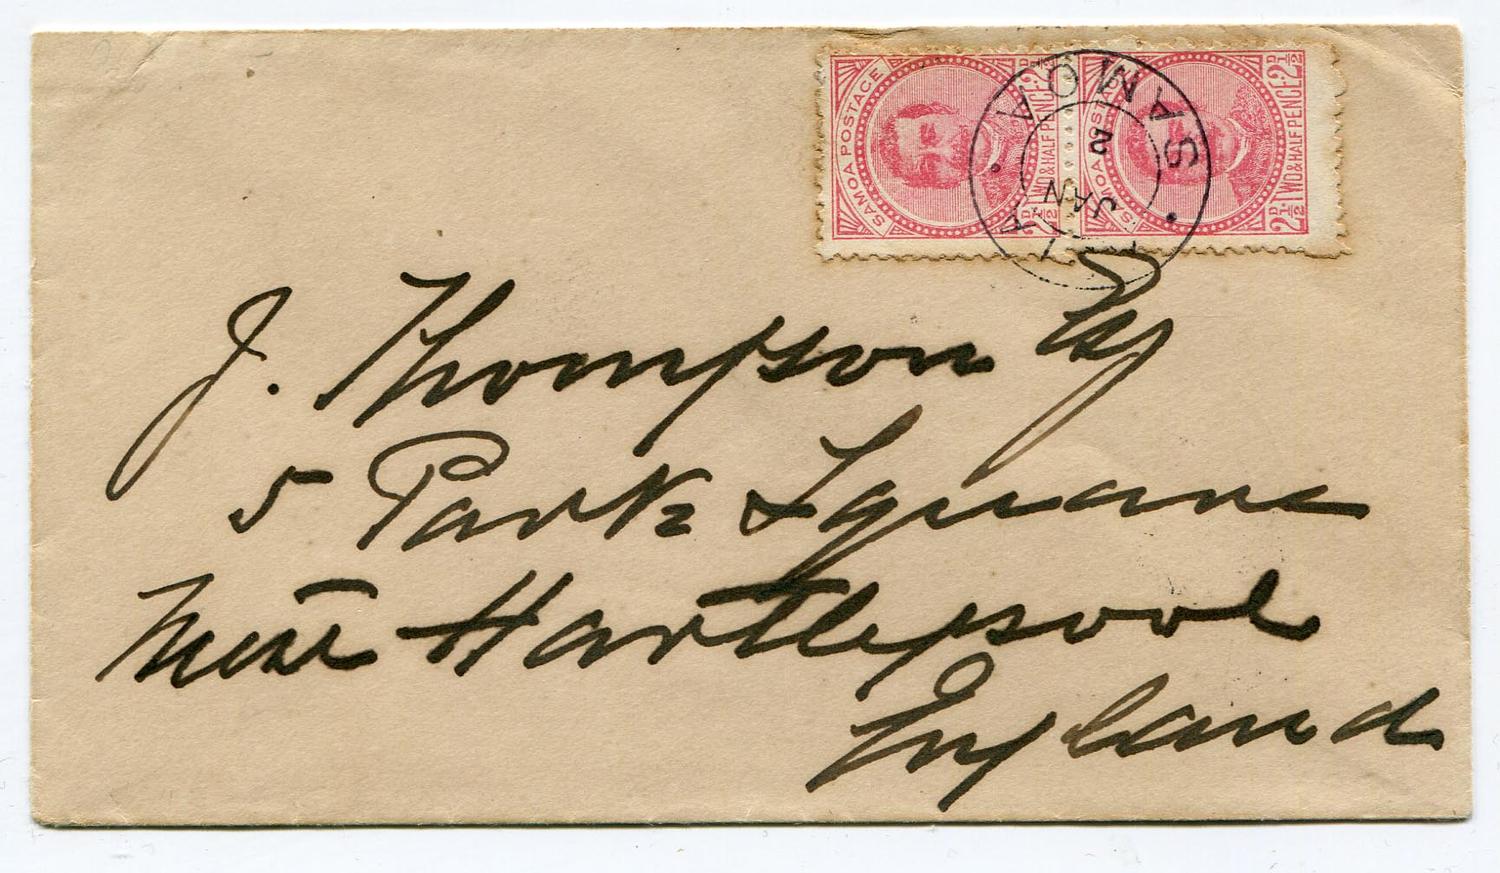 SAMOA POSTAGE
2D. ½ TWO & HALF PENCE 2D. ½
SAMOA POSTAGE
2D. ½ TWO & HALF PENCE 2D. ½
SAMOA
2
JAN
J. Thompson Esq
5 Park Square
West Hartlepool
England